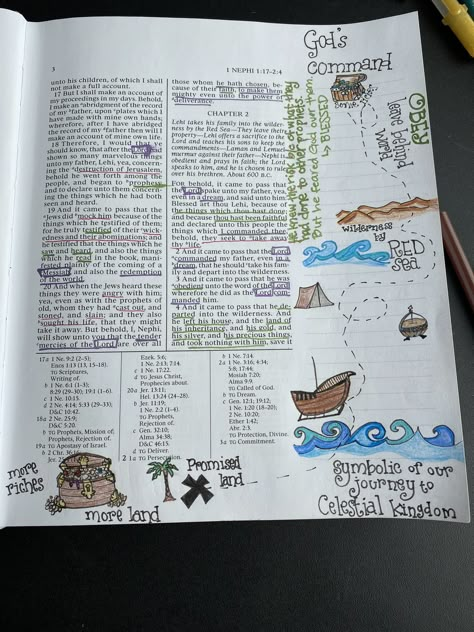 God's
command
3
1 NEPHI 1:17–2:4
unto his children, of which I shall
not make a full account.
17 But I shall make an account of
my proceedings in my days. Behold,
I make an abridgment of the record
of my father, upon plates which I
have made with mine own hands;
wherefore, after I have abridged
the record of my father then will I
make an account of mine own life.
18 Therefore, I would that ye
should know, that after the Lord had
shown so many marvelous things
unto my father, Lehi, yea, concern-
ing the destruction of Jerusalem,
behold he went forth among the
people, and began to prophesy
and to declare unto them concern-
ing the things which he had both
seen and heard.
19 And it came to pass that the
Jews did mock him because of the
things which he testified of them;
for he truly testified of their wick-
edness and their abominations; and
he testified that the things which he
saw and heard, and also the things
which he read in the book, mani-
fested plainly of the coming of a
Messiah, and also the redemption
of the world.
20 And when the Jews heard these
things they were angry with him;
yea, even as with the prophets of
old, whom they had cast out, and
stoned, and slain; and they also
sought his life, that they might
take it away. But behold, I, Nephi,
will show unto you that the tender
mercies of the Lord are over all
those whom he hath chosen, be-
cause of their faith, to make them
mighty even unto the power of
deliverance.
CHAPTER 2
Lehi takes his family into the wilder-
ness by the Red Sea—They leave their
property—Lehi offers a sacrifice to the
Lord and teaches his sons to keep the
commandments—Laman and Lemuel
murmur against their father—Nephi is
obedient and prays in faith; the Lord
speaks to him, and he is chosen to rule
over his brethren. About 600 B.C.
For behold, it came to pass that
the Lord spake unto my father, yea,
even in a dream, and said unto him:
Blessed art thou Lehi, because of
the things which thou hast done;
and because thou hast been faithful
and declared unto this people the
things which I commanded thee,
behold, they seek to take away
thy life.
2 And it came to pass that the Lord
commanded my father, even in a
dream, that he should take his fam-
ily and depart into the wilderness.
3 And it came to pass that he was
obedient unto the word of the Lord,
wherefore he did as the Lord com-
manded him.
4 And it came to pass that he de-
parted into the wilderness. And
he left his house, and the land of
his inheritance, and his gold, and
his silver, and his precious things,
and took nothing with him, save it
OBEY
wilderness
by
RED
sea
17 a 1 Ne. 9:2 (2–5);
Enos 1:13 (13, 15–18).
TG Scriptures,
Writing of.
b 1 Ne. 6:1 (1–3);
c 1 Ne. 10:15.
D&C 5:20.
b TG Prophets, Mission of;
Prophets, Rejection of.
19 a TG Apostasy of Israel.
Ezek. 5:6;
1 Ne. 2:13; 7:14.
c 1 Ne. 17:22.
d TG Jesus Christ,
Prophecies about.
20 a Jer. 13:11;
Hel. 13:24 (24–28).
b Jer. 11:19;
1 Ne. 2:2 (1–4).
TG Prophets,
Rejection of.
c Gen. 32:10;
Alma 34:38;
D&C 46:15.
d TG Deliver.
2 1 a TG Persecution.
b 1 Ne. 7:14.
2 a 1 Ne. 3:16; 4:34;
5:8; 17:44;
Mosiah 7:20;
Alma 9:9.
TG Called of God.
b TG Dream.
c Gen. 12:1; 19:12;
1 Ne. 1:20 (18–20);
2 Ne. 10:20;
Ether 1:42;
Abr. 2:3.
TG Protection, Divine.
3 a TG Commitment.
more
riches
more land
Promised
land
symbolic of our
journey to
Celestial Kingdom